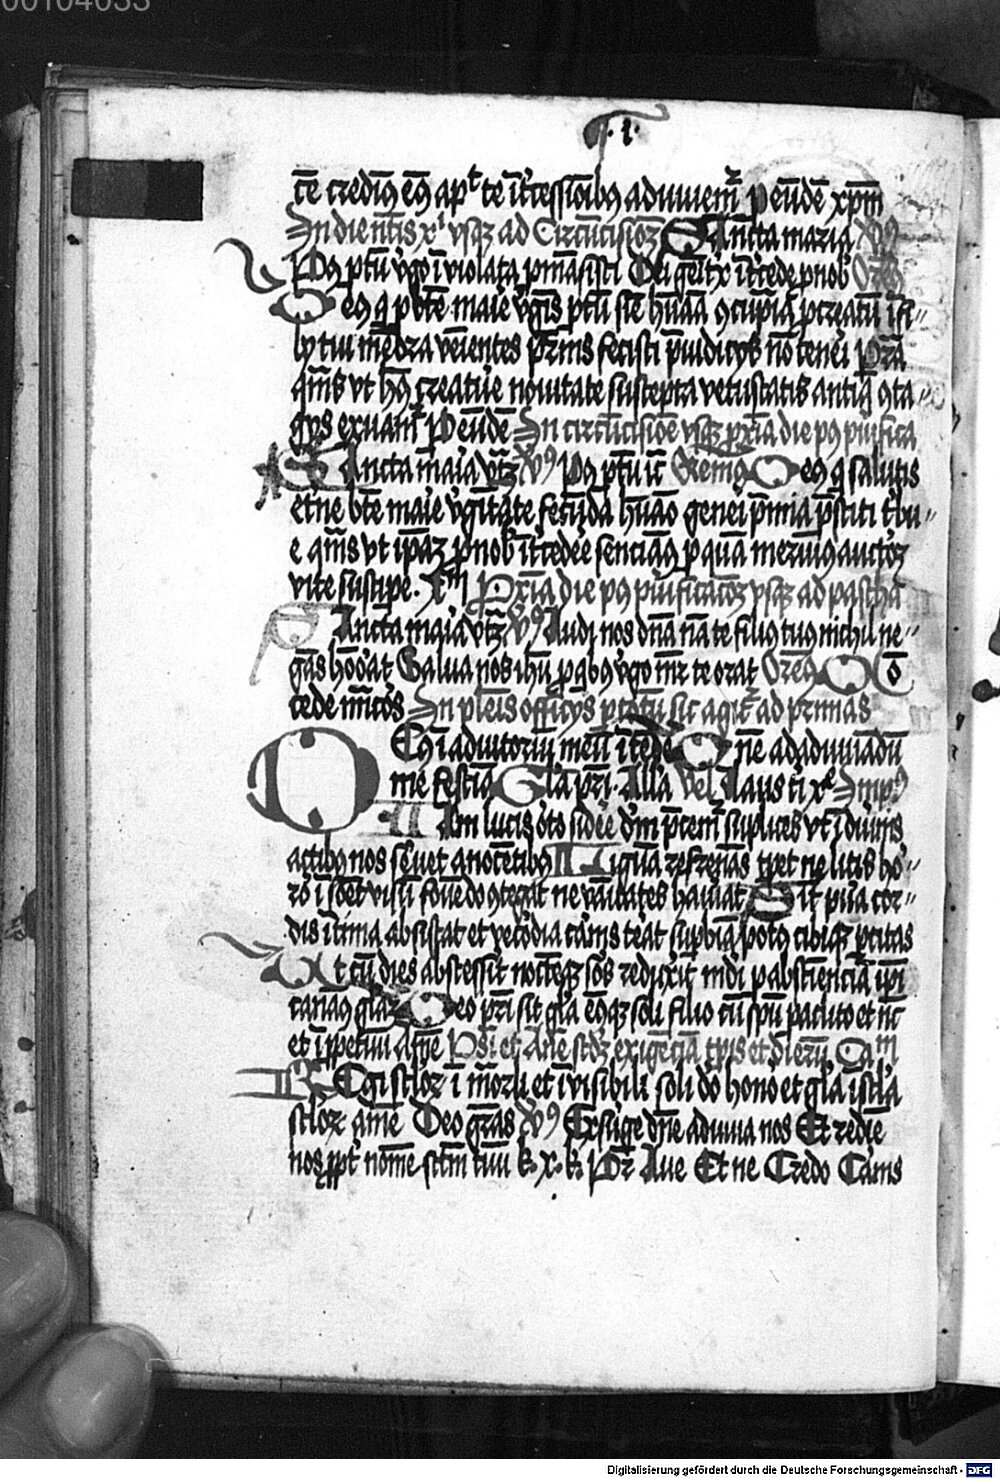 00104033
.I.
te credimꝰ eiꝰ apᵗ te ītercessionibꝰ adiuuemr̄ P eūdē xp̄m
In die natis xi vsqꝫ ad Circūcisionꝫ Sancta maria Vꝰ
Pꝰ ptū vgo īviolata pmāsisti Dei geitx ītcede p nob Oremꝰ
Deꝰ q p bte maie vgis ptū
ly tui mēbra veīentes fecisti nō teneri
qmꝰ vt hꝰ creatue nouitate suscepta vetustatis antiq ꝯta
gijs exuamr̄ P eūdē In circūcisiōe vsqꝫ pxīa die pꝰ pūifica
Sancta maīa vtꝫ Vꝰ Pꝰ ptū ut Oremꝰ Deꝰ q salutis
etne bte maie vgītate fecūda hūāo genei pmia pstiti tbu
e qmꝰ vt ipaꝫ p nob ītcedee senciamꝰ p quā meruimꝰ auctorꝫ
vite suscipe. Xm Pxīa die pꝰ pūificacōꝫ vsqꝫ ad pascha
Sancta maīa vtꝫ Vꝰ Audi nos dnā nā te filiꝰ tuꝰ nichil ne
gās honorat Salua nos ihū p qbꝰ vgo mr te orat Oremꝰ Cō
cede mīcos In officijs sic agitr̄ ad primas
Deꝰ ī adiutoriū meū ītede Dne ad adiuuādū
me festīa Gla pri. Alla Vel Laus ti xe Impꝰ
Iam lucis orto sidee dm pcemr suplices vt ī diuīis
actibꝰ nos seruet a nocētibꝰ Liguā refrenās tpet ne litis ho
ror īsonet visū fouēdo ꝯtegat ne vāitates hauriat Sīt pura cor
dis ītima absistat et vecordia carnis terat supbiā potꝰ cibiqꝫ pcitas
Vt cū dies abscessit noctēqꝫ sors reduxit mūdi p abstīenciā ipi
canamꝰ glāꝫ Deo pri sit gla eiꝰqꝫ soli filio cū spū paclito et nc
et ī ppetuū Amē Psi et Ane scdꝫ exigēciā tpis et dierū Cam
Regi sclorꝫ ī mortali et īvisibili soli do honor et gla ī scla
sclorꝫ amē Deo gras Vꝰ Exsurge dne adiuua nos Et redīe
nos ppt nomē sctm tuū k. x. k. Pr Aue Et ne Credo Carnis
Digitalisierung gefördert durch die Deutsche Forschungsgemeinschaft - DFG